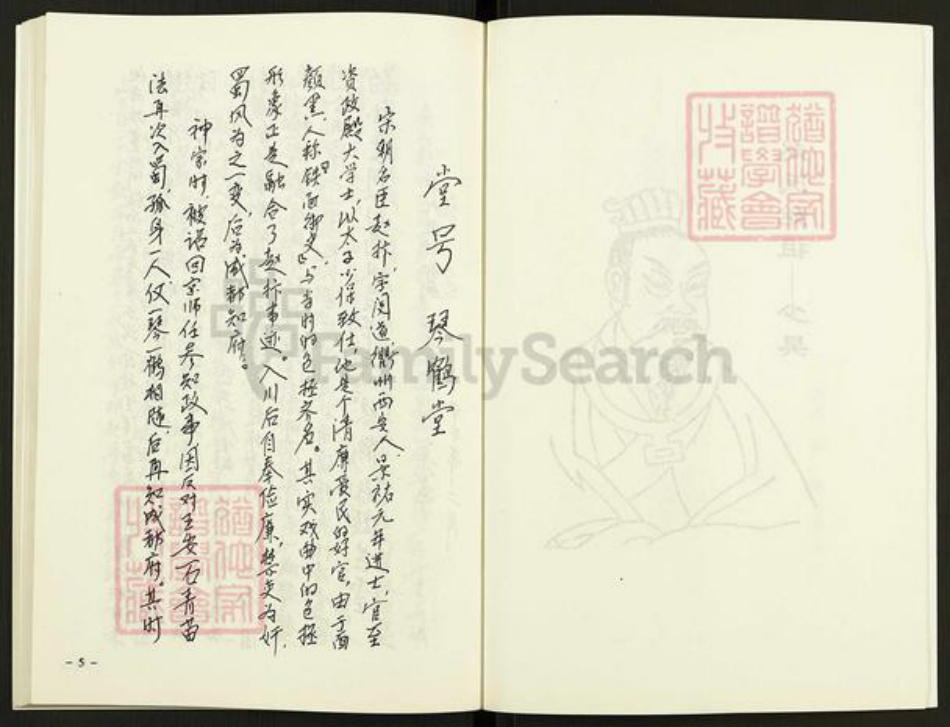 堂号 琴鹤堂
宋朝名臣赵抃，字阅道，衢州西安人，景祐元年进士，官至
资政殿大学士，以太子少保致仕。他是个清廉爱民的好官，由于面
颜黑，人称“铁面御史”，与当时的包拯齐名。其实戏曲中的包拯
形象正是融合了赵抃事迹。入川后自奉俭廉，禁吏为奸，
蜀风为之一变，后为成都知府。
神宗时，被诏回京师任参知政事，因反对王安石青苗
法再次入蜀，孤身一人，仅一琴一鹤相随，后再知成都府。其时
- 5 -
猶他家
譜學會
收藏
猶他家
譜學會
收藏
FamilySearch